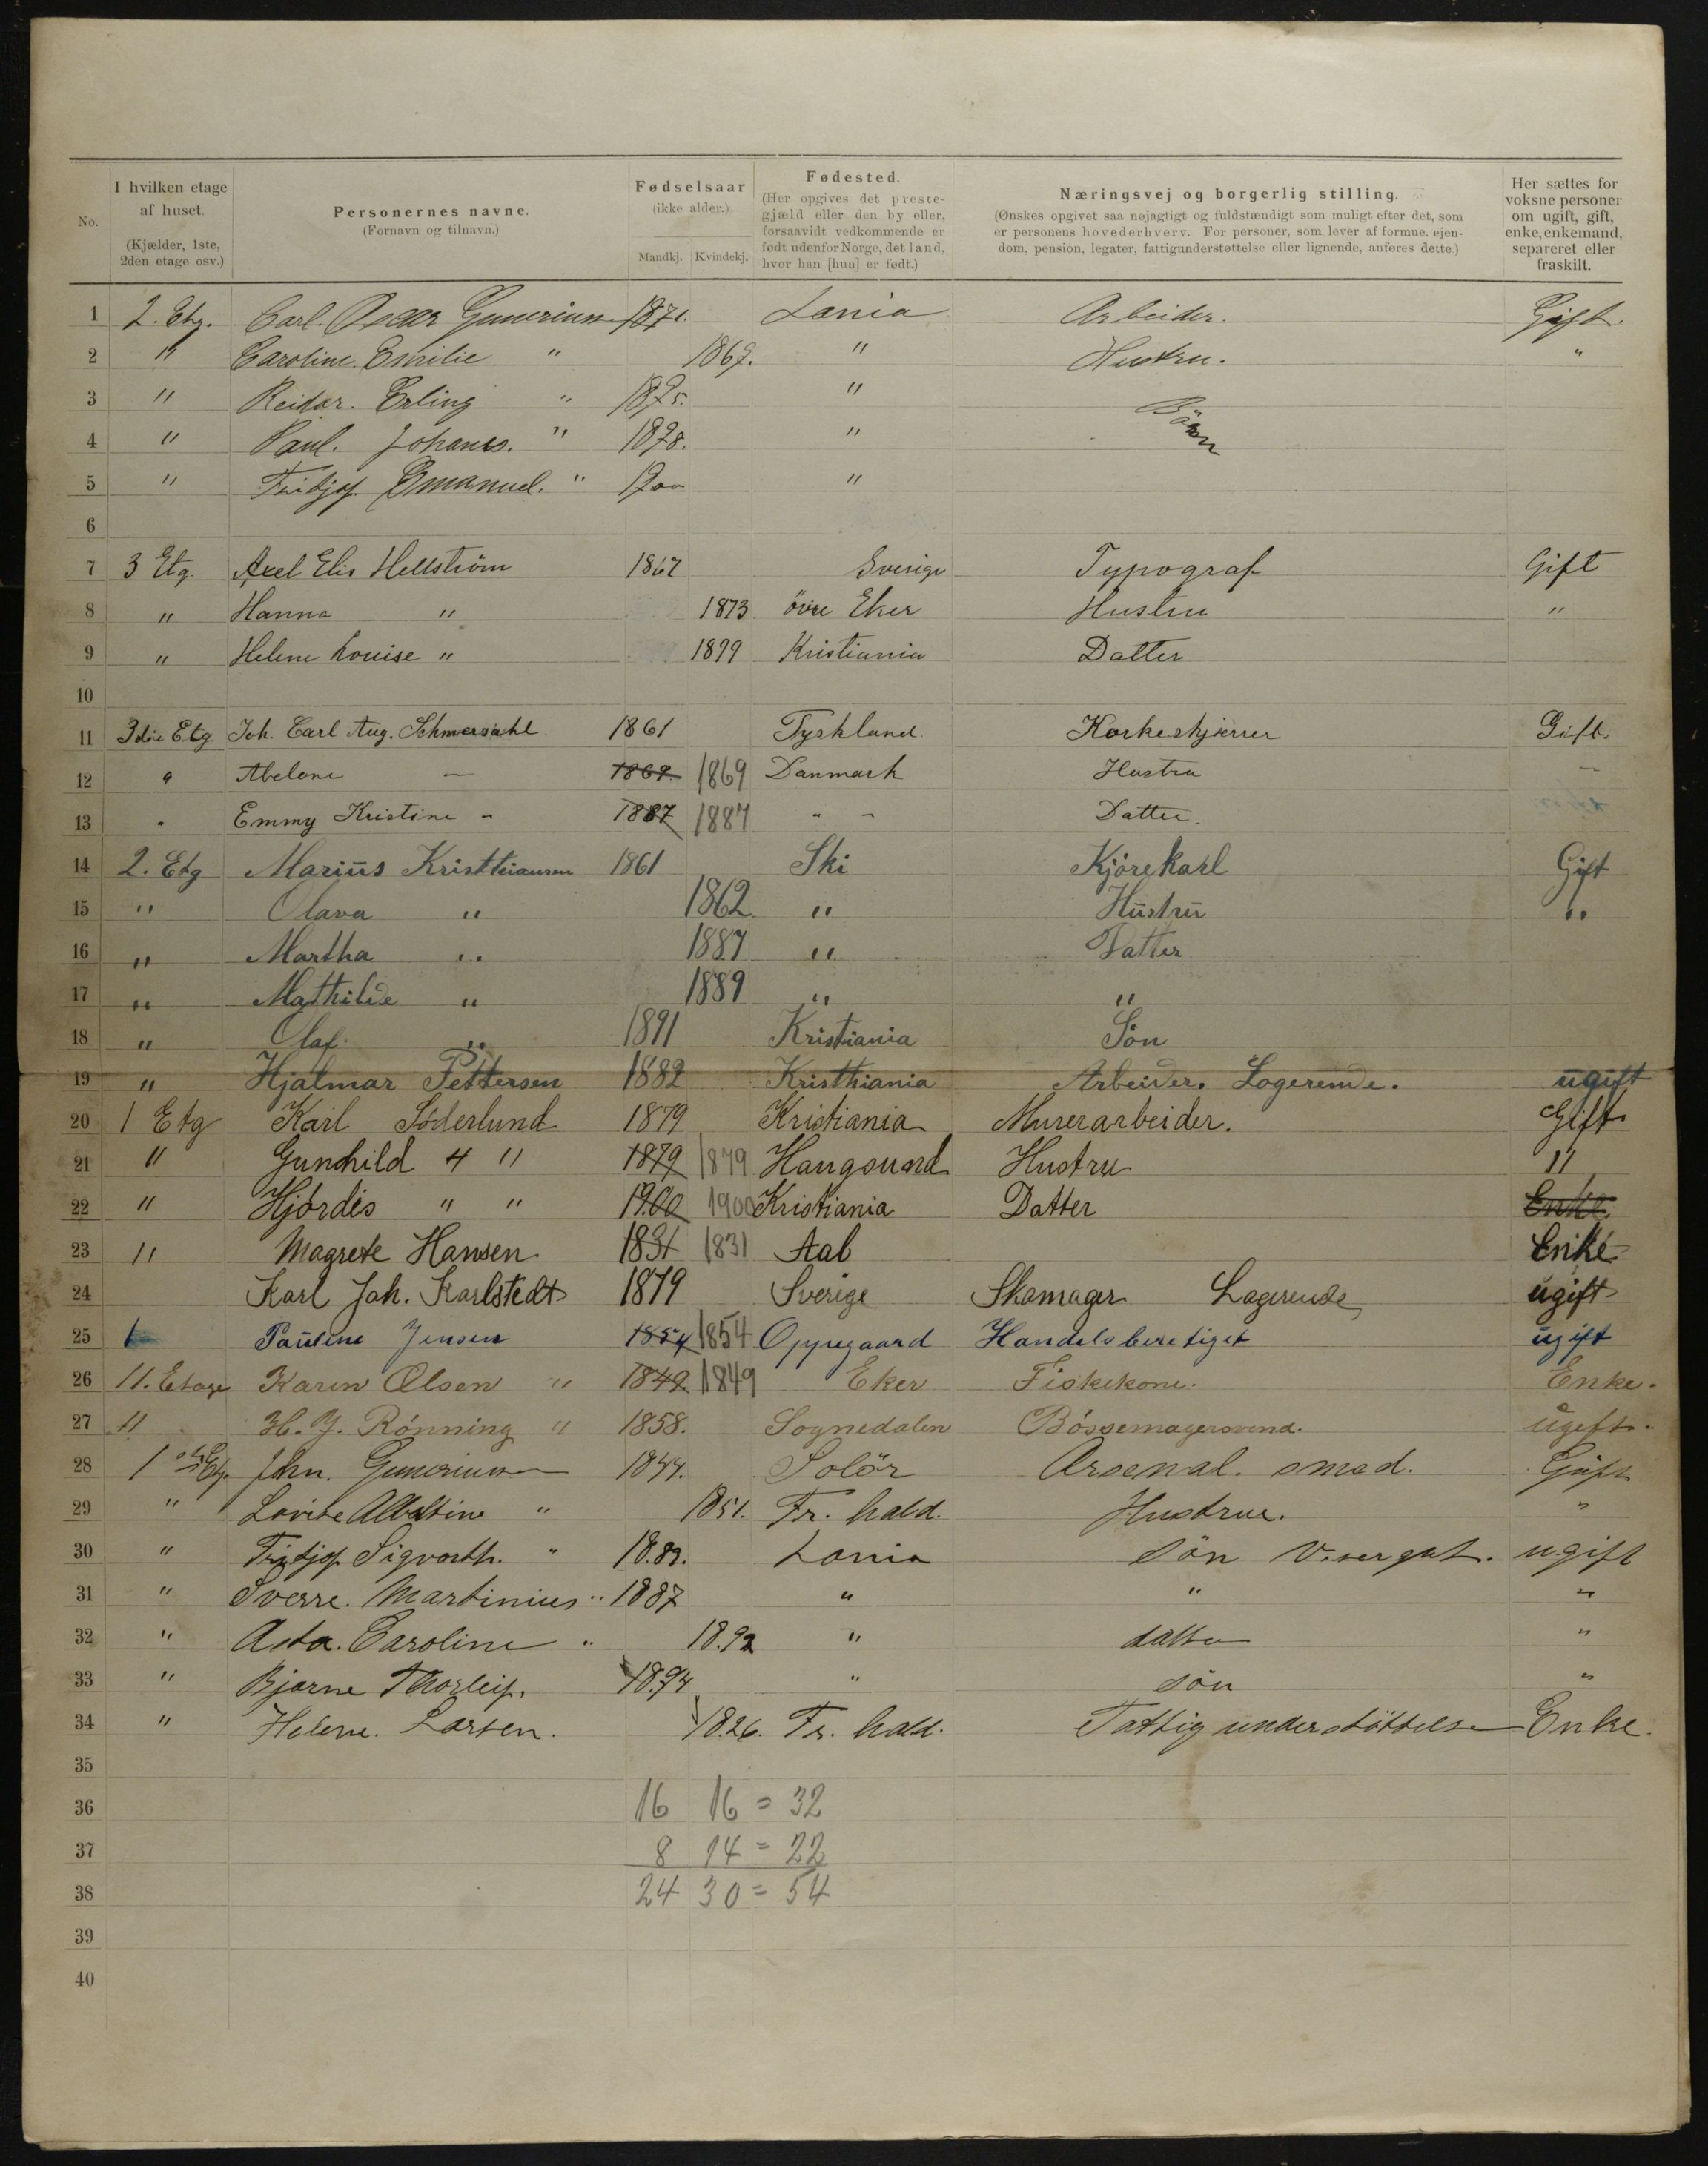 No. I hvilken etage af huset. (Kjælder, 1ste, 2den etage osv.) Personernes navne. (Fornavn og tilnavn.) Fødselsaar (ikke alder.) Mandkj. Kvindekj. Fødested. (Her opgives det prestegjæld eller den by eller, forsaavidt vedkommende er født udenfor Norge, det land, hvor han [hun] er født.) Næringsvej og borgerlig stilling. (Ønskes opgivet saa nøjagtigt og fuldstændigt som muligt efter det, som er personens hovederhverv. For personer, som lever af formue, ejendom, pension, legater, fattigunderstøttelse eller lignende, anføres dette.) Her sættes for voksne personer om ugift, gift, enke, enkemand, separeret eller fraskilt.
1 2. Etg. Carl. Oscar Gunerius 1871. Lania Arbeider. Gift.
2 " Caroline. Emilie " 1869. " Hustru. "
3 " Reidar. Erling " 1895. " Börn
4 " Paul. Johanes. " 1898. "
5 " Fritjof. Emanuel. " 1900 "
6
7 3 Etg. Axel Elis Hellström 1867 Sverige Typograf Gift
8 " Hanna " 1873 övre Eker Hustru "
9 " Helene Louise " 1899 Kristiania Datter
10
11 3die Etg. Joh. Carl Aug. Schmersahl. 1861 Tyskland Korkeskjærer Gift.
12 " Abelone – 1869 1869 Danmark Hustru –
13 " Emmy Kristine " 1887 1887 " " Datter.
14 2. Etg Marius Kristhiansen 1861 Ski Kjörekarl Gift
15 " Olava " 1862 " Hustru "
16 " Martha " 1887 " Datter
17 " Mathilde " 1889 " "
18 " Olaf. " 1891 Kristiania Sön
19 " Hjalmar Pettersen 1882 Kristhiania Arbeider. Logerende. ugift
20 1 Etg Karl Söderlund 1879 Kristiania Murerarbeider. Gift
21 " Gunhild " " 1879 1879 Haugsund Hustru "
22 " Hjördis " " 1900 1900 Kristiania Datter Enke
23 " Magrete Hansen 1831 1831 Aal Enke
24 Karl Joh. Karlstedt 1879 Sverige Skomager Lagerende ugift
25 1 Pauline Jensen 1854 1854 Oppegaard Handelsberetiget ugift
26 11. Etage Karen Olsen " 1849. 1849 Eker Fiskekone. Enke.
27 11 H. J. Rönning " 1858. Sognedalen Bössemagersvend. ugift.
28 1ste Etg. Jhn. Gunerius 1844. Solör Arsenal. smed. Gift
29 " Lovise Albertine " 1851. Fr. hald. Hustrue. "
30 " Fritjof. Sigvarth. " 18.82. Lania sön Visergut. ugift
31 " Sverre. Martinius " 1887 " " "
32 " Asta. Caroline " 18.92 " datter "
33 " Bjarne Thorleif. 18.94 " sön "
34 " Helene. Larsen. 1826. Fr. hald. Fattig understöttelse Enke.
35
36 16 16 = 32
37 8 14 = 22
38 24 30 = 54
39
40